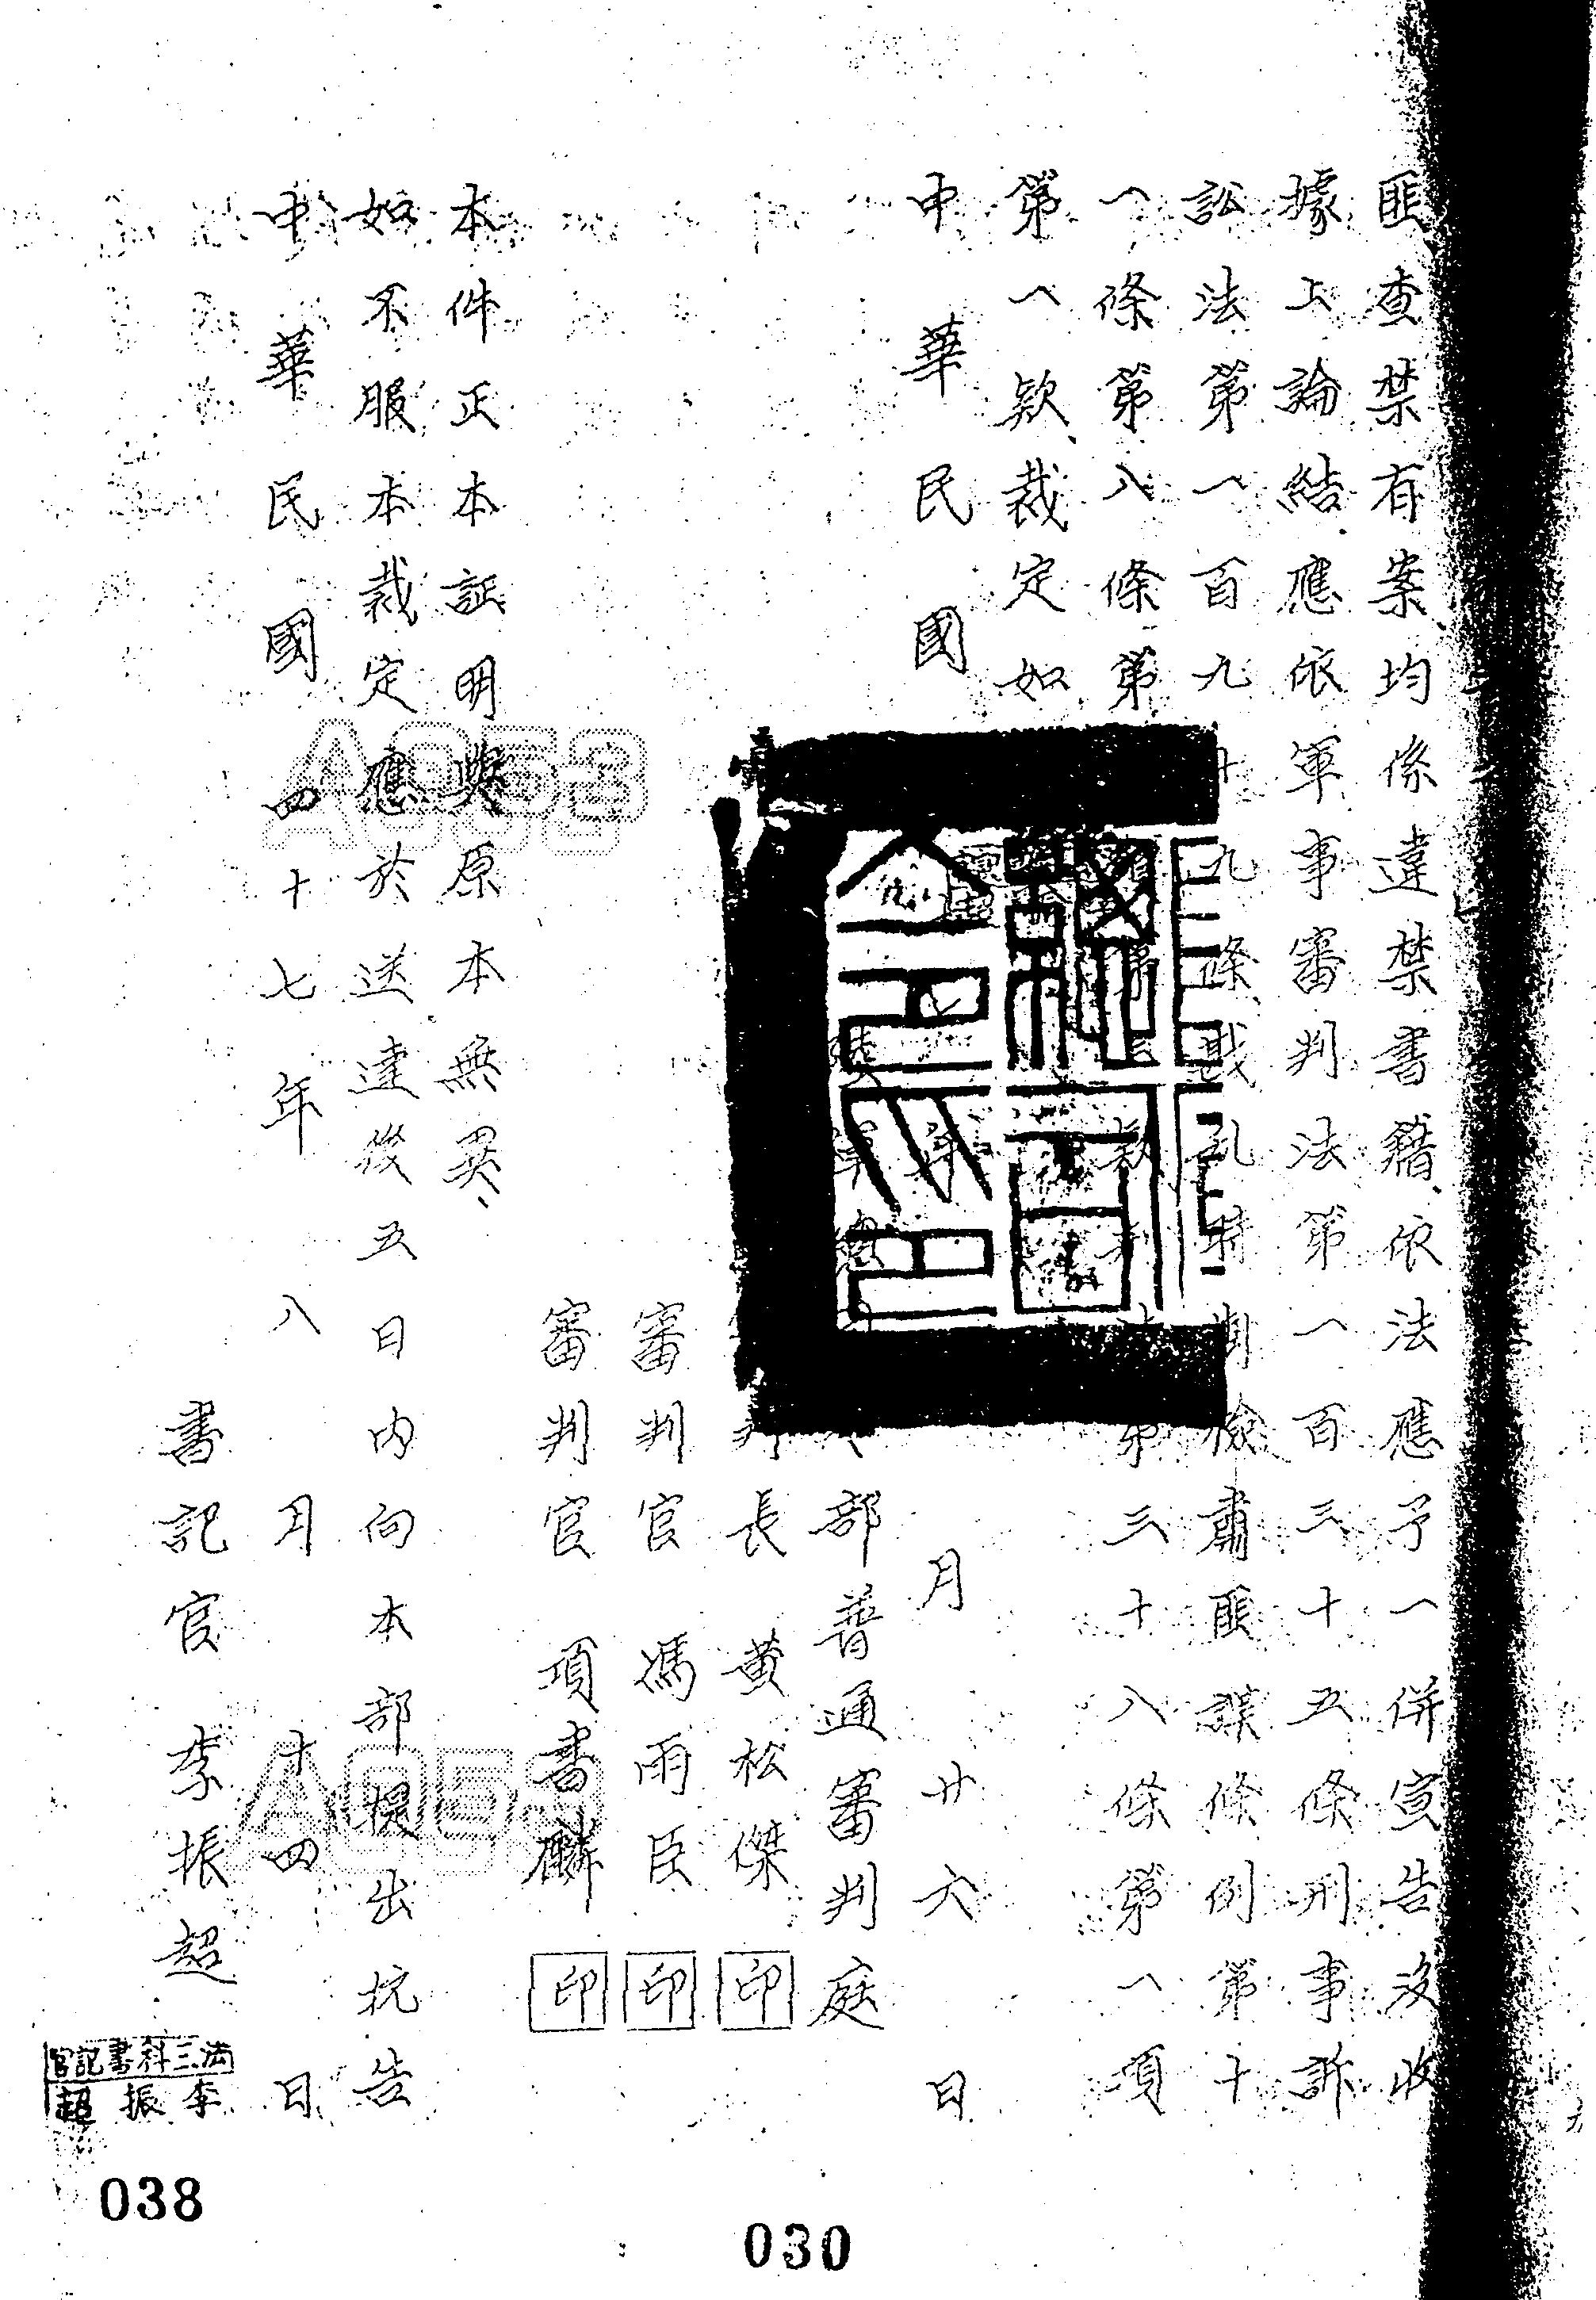 匪查禁有案均係違禁書籍、依法應予一併宣告沒收
據上論結應依軍事審判法第一百三十五條刑事訴
訟法第一百九十九條、戡亂時期檢肅匪諜條例第十
一條第八條第 款 第三十八條第一項
第一款、裁定如
中華民國 年 月廿六日
部普通審判庭
長 黃松傑 印
審判官 馮雨臣 印
審判官 項書麟 印
本件正本証明與原本無異、
如不服本裁定應於送達後五日內向本部提出抗告
中華民國四十七年八月十四日
書記官 李振超
法三科書記官
李振超
A053
A053
038
030